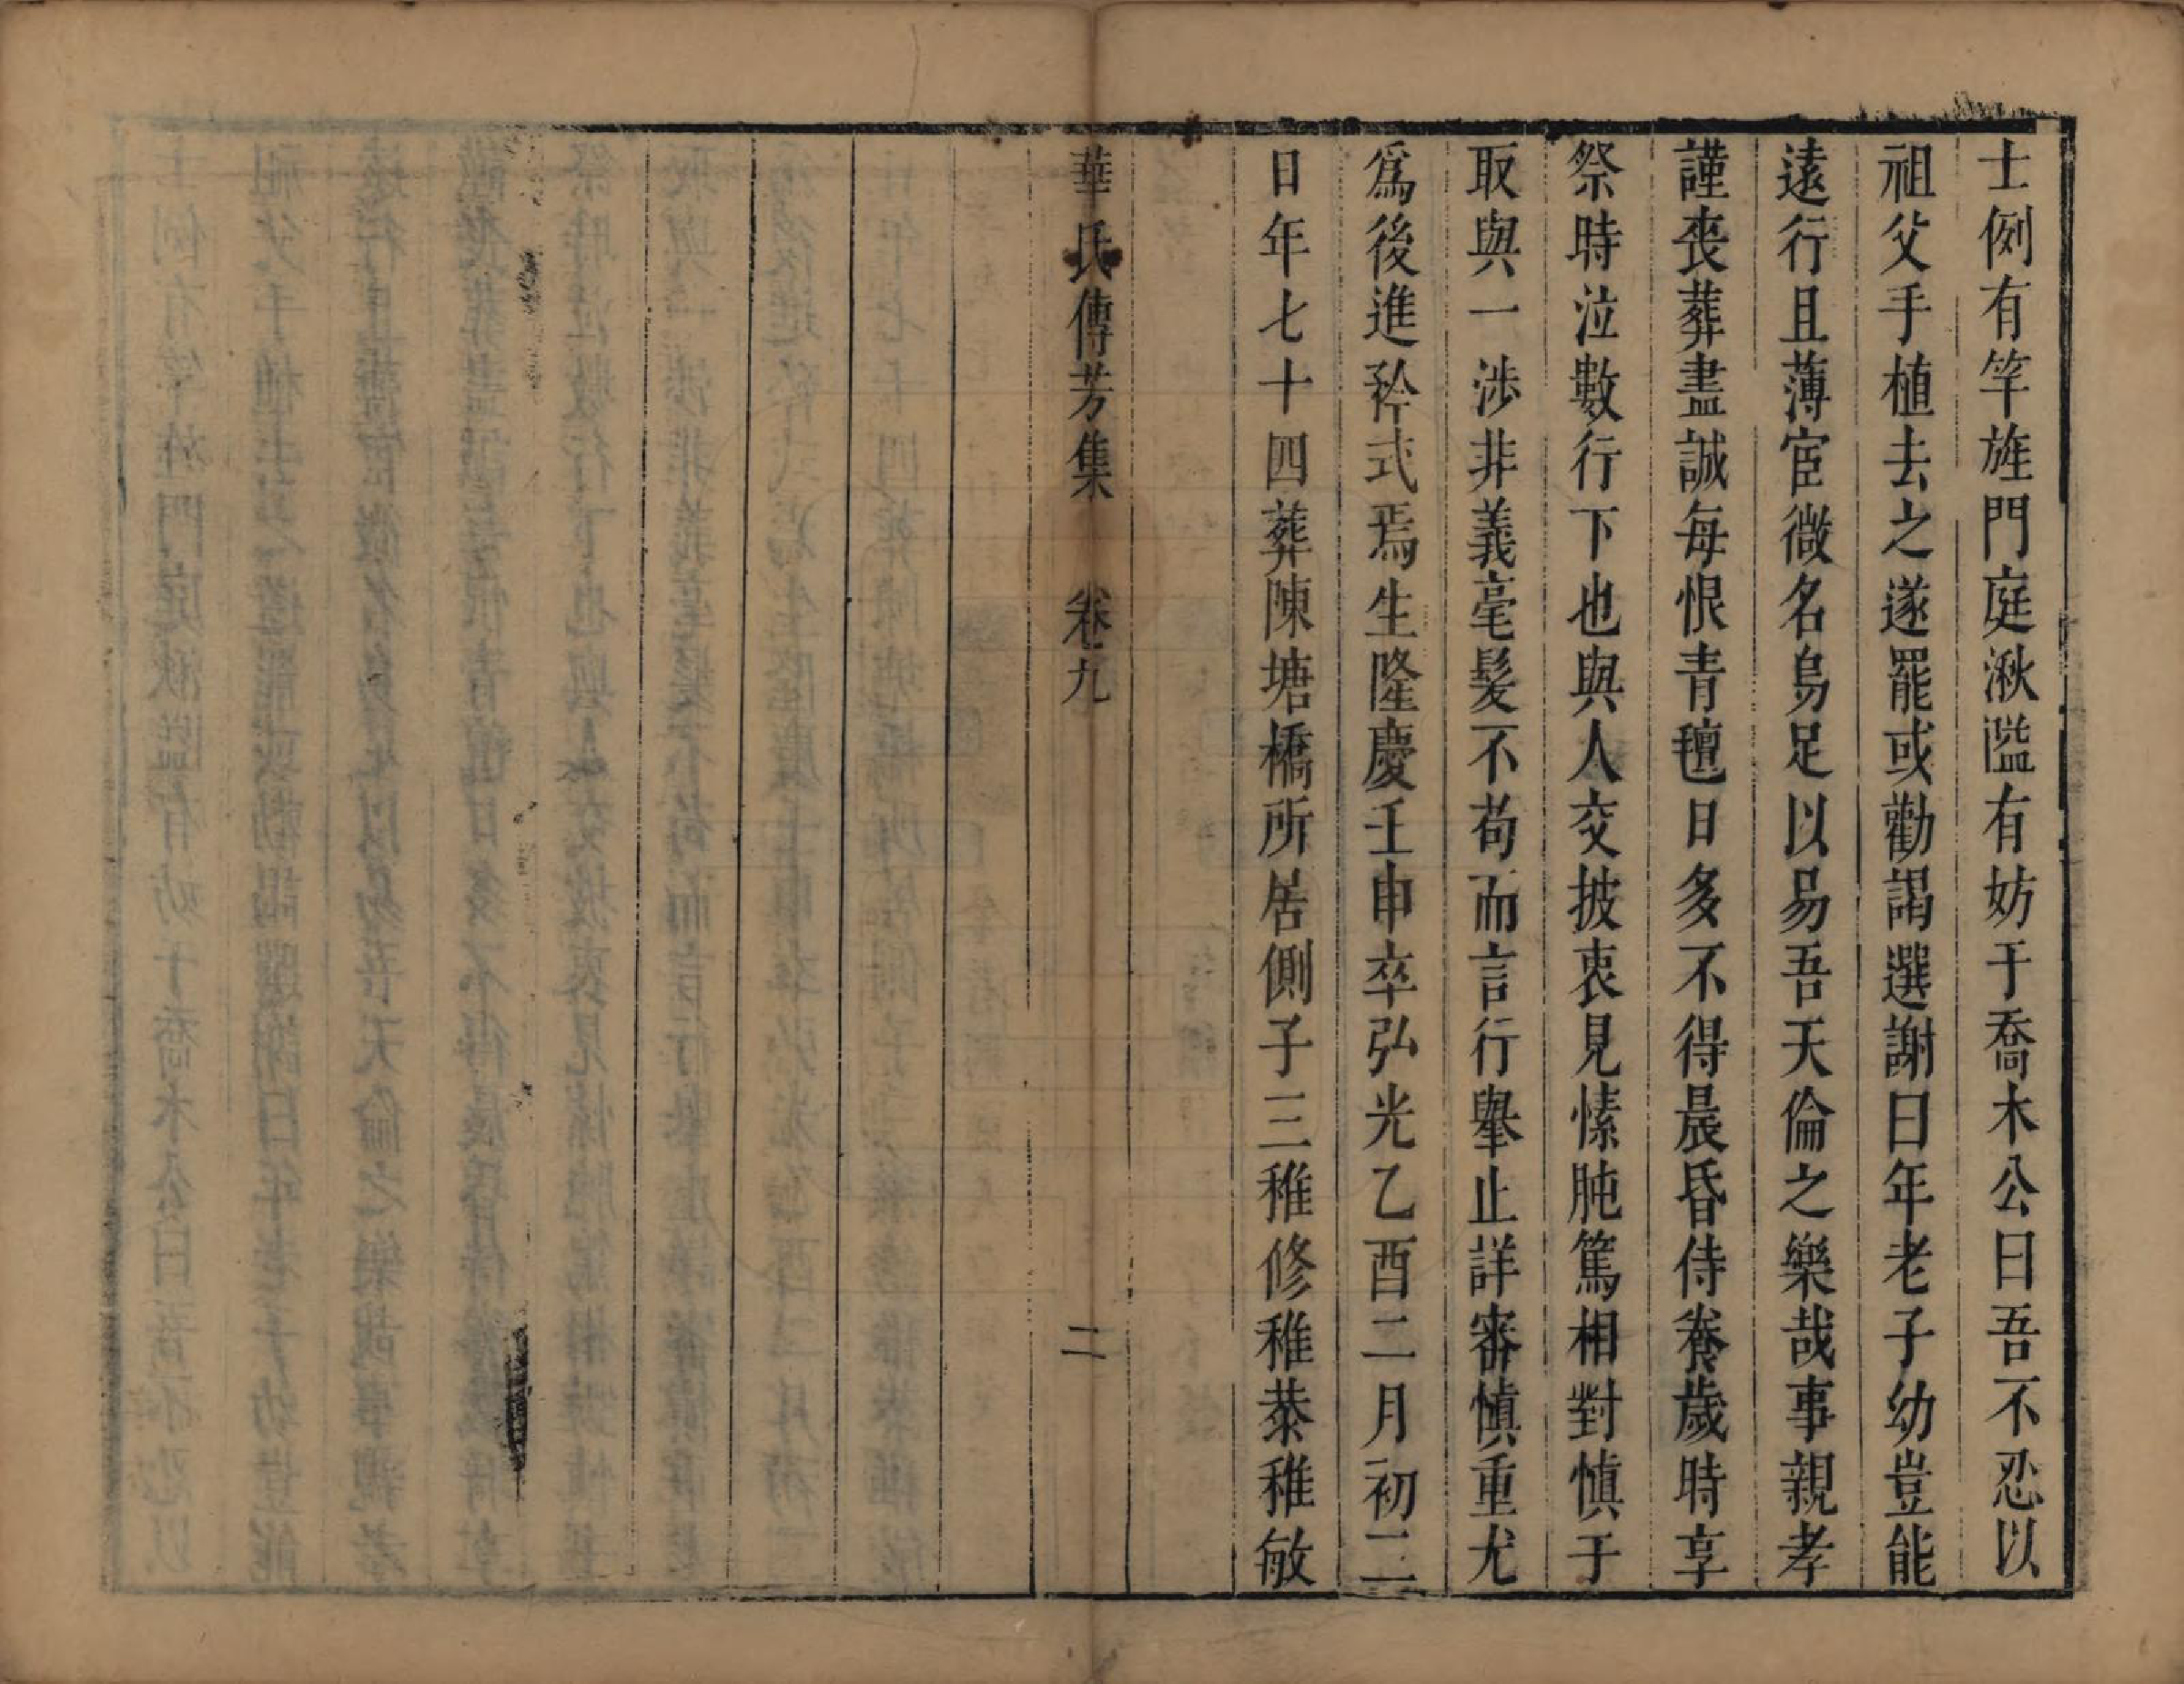 士例有竿旌門庭湫隘有妨于喬木公曰吾不忍以
祖父手植去之遂罷或勸謁選謝曰年老子幼豈能
遠行且薄宦微名烏足以易吾天倫之樂哉事親孝
謹喪葬盡誠每恨青氊日多不得晨昏侍養歲時享
祭時泣數行下也與人交披衷見愫肫篤相對慎于
取與一涉非義毫髮不苟而言行舉止詳審慎重尤
爲後進矜式焉生隆慶壬申卒弘光乙酉二月初二
日年七十四葬陳塘橋所居側子三稚修稚恭稚敏
華氏傳芳集 卷九 二